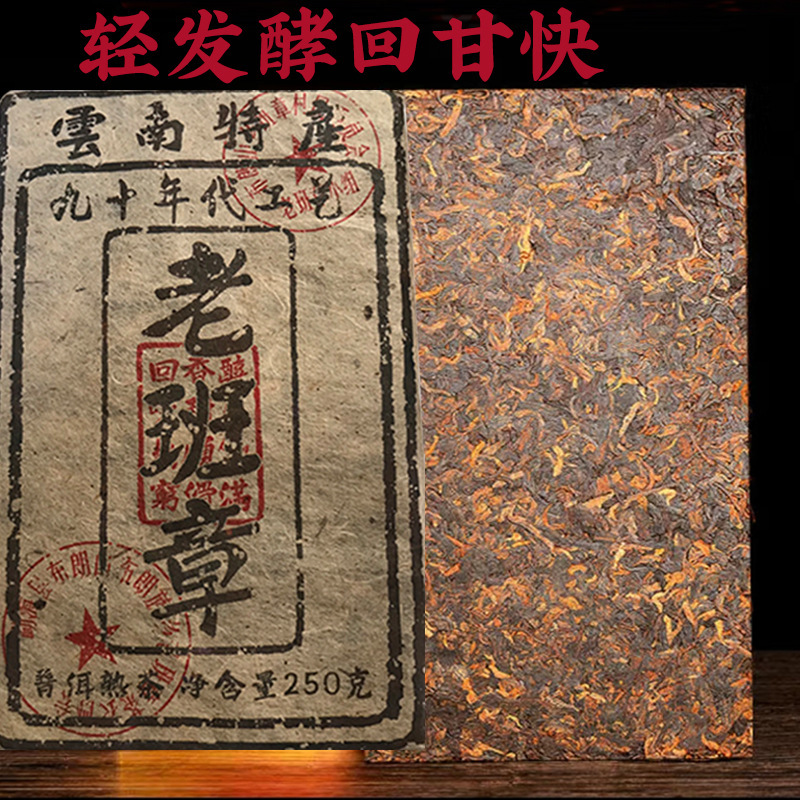 轻发酵回甘快
雲南特産
九十年代工艺
老班章
普洱熟茶 净含量250克